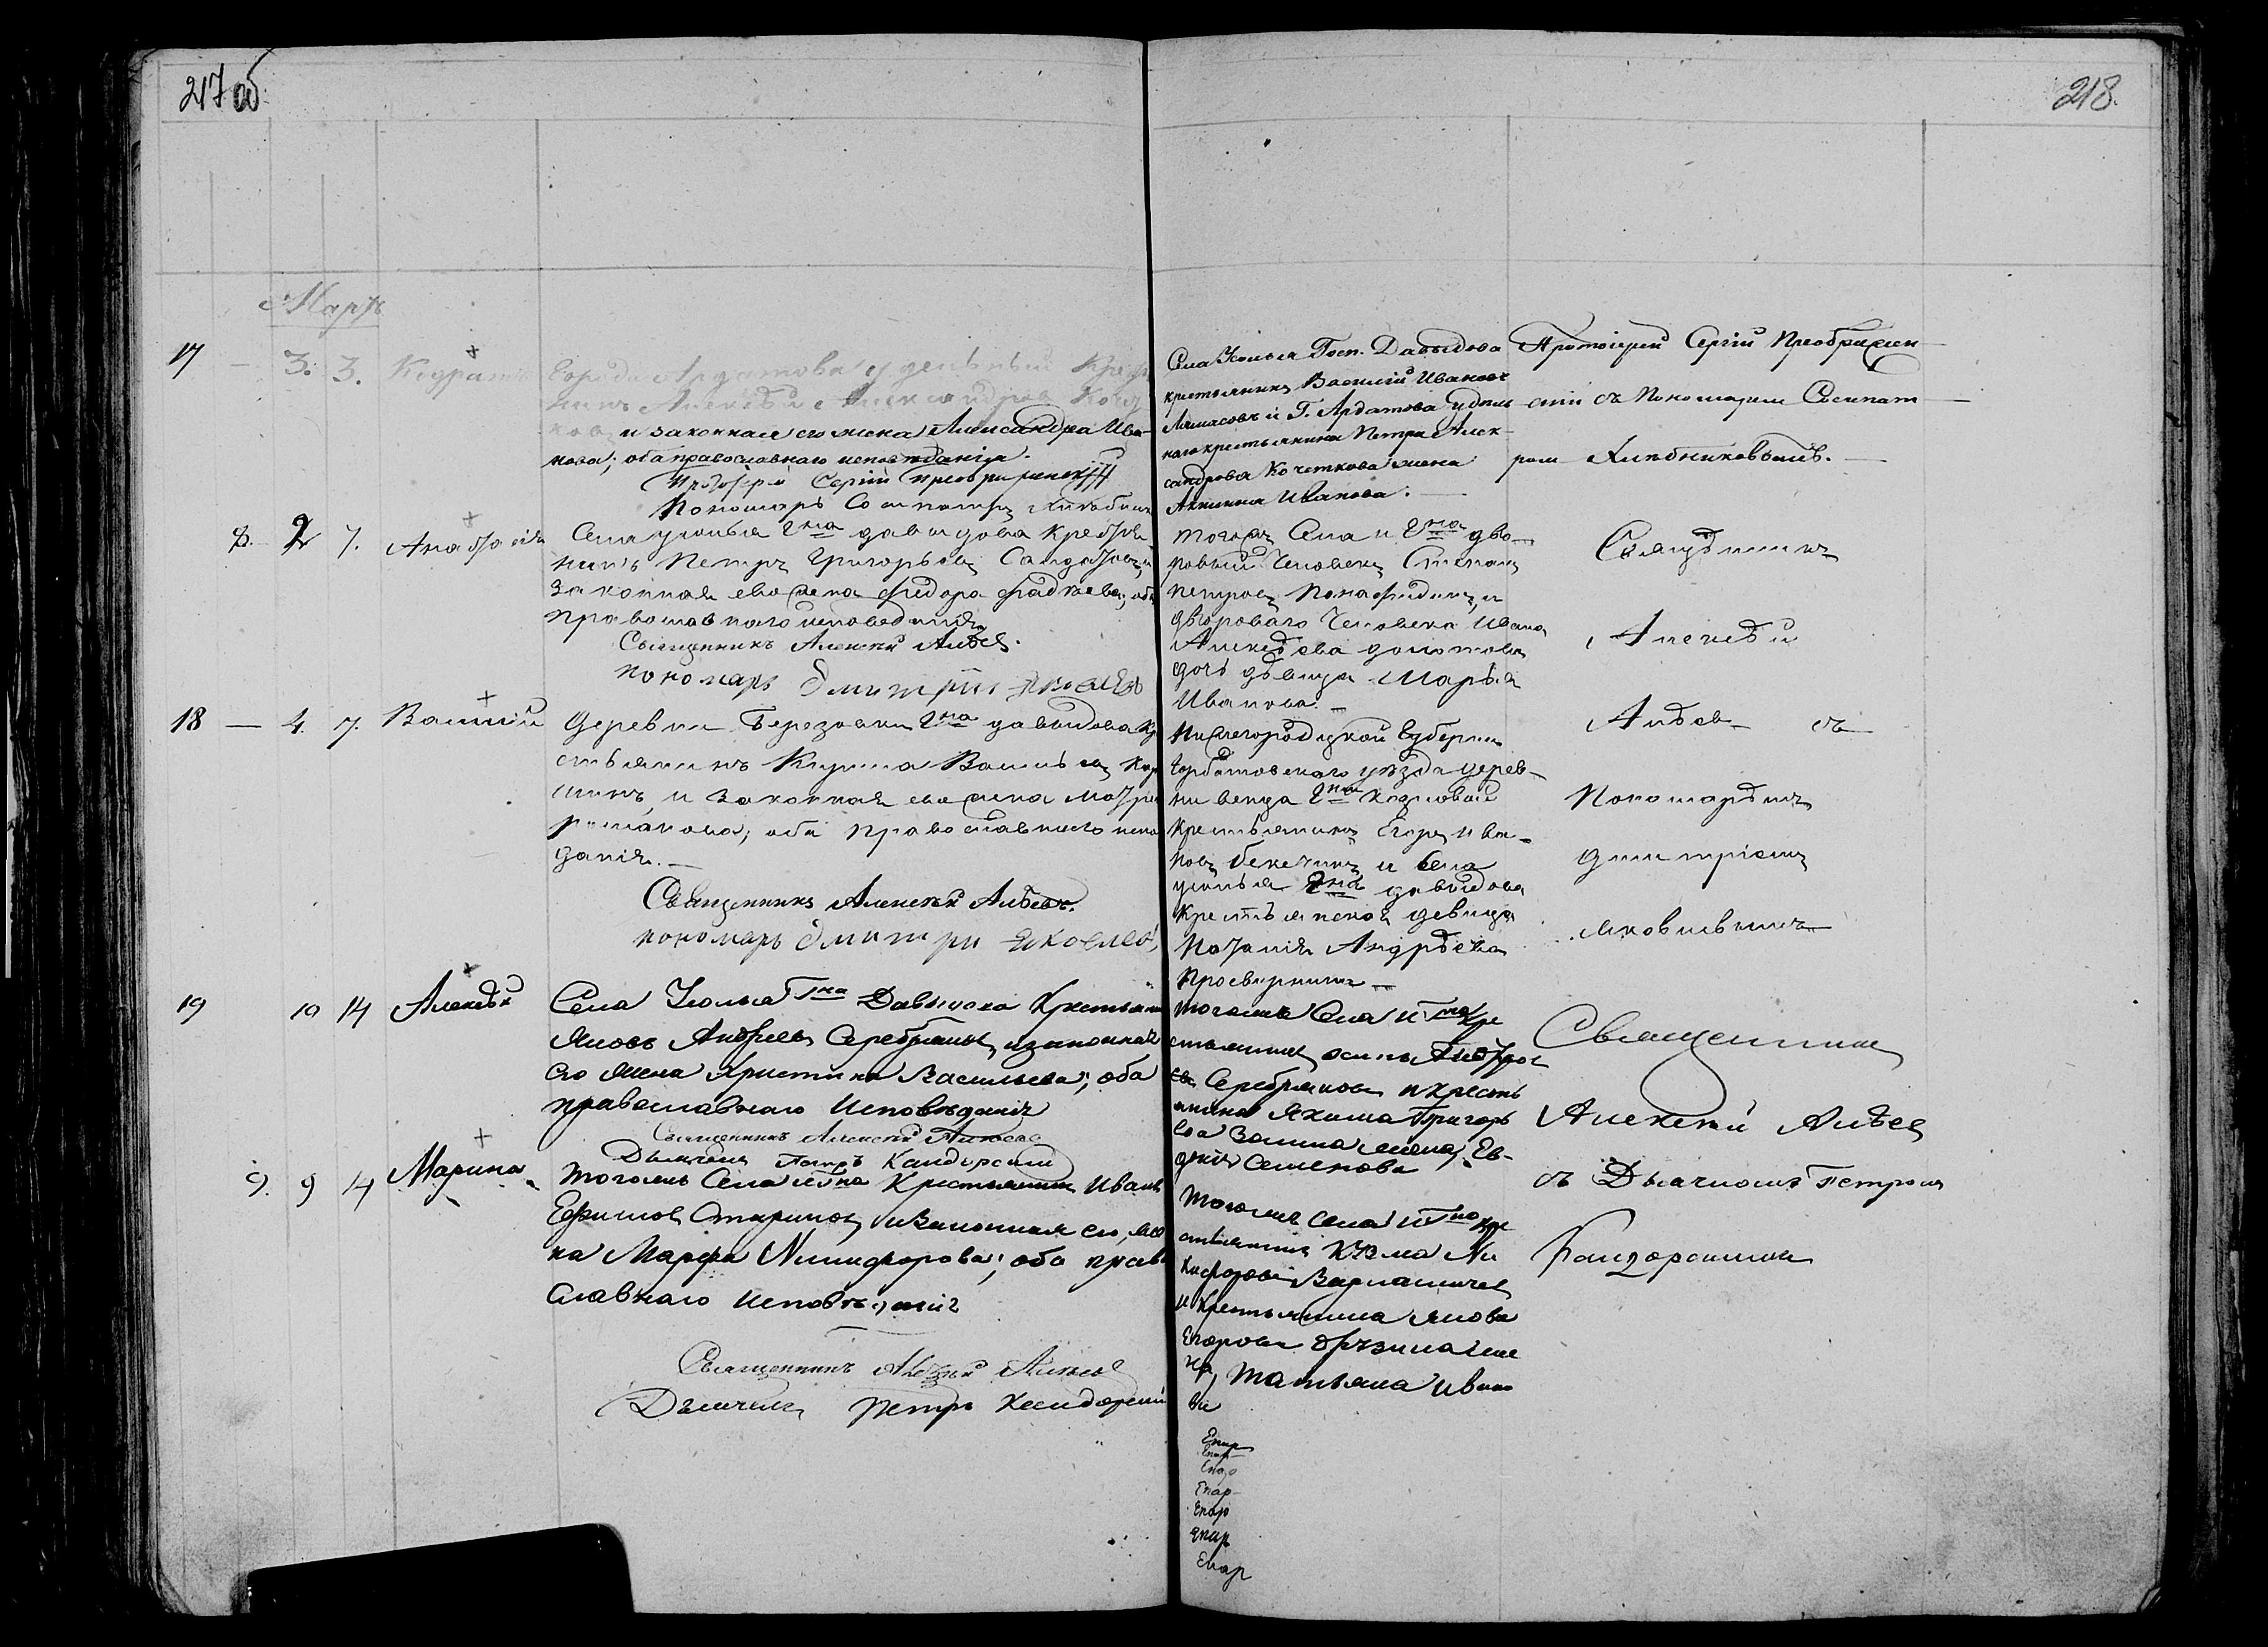 217 об
218.
Мартъ
17 — 3. 3. Кодратъ
Города Ардатова удельный Крестья
нинъ Алексѣй Александровъ Кочет
ковъ и законная его жена Александра Ива-
нова; оба православнаго исповѣданія.
Протоіерей Сергій Преображенскій
Пономарь
Села Усолья Госп. Давыдова
крестьянинъ Василій Ивановъ
и Г. Ардатова удѣль
наго крестьянина Петра Алек-
сандрова Кочеткова жена
Акилина Иванова.
Протоіерей Сергій Преображен-
скій съ Пономаремъ Сосипат-
ромъ Хлѣбниковымъ.
8. 2 7. Анастасія
Села усолья Гна давыдова Крестья
нинъ Петръ Григорьевъ
законная его жена Федора Фадеева, оба
православнаго исповеданія
Священникъ Алексѣй Алѣевъ.
пономарь Дмитрій Яковлевъ
тогожъ Села и Гна дво-
ровый Человекъ Степанъ
Петровъ и
двороваго Человека Ивана
Алексѣева
дочь дѣвица Марья
Иванова. —
Священникъ
Алексѣй
Алѣевъ съ
Пономаремъ
Димитріемъ
Яковлевымъ
18 — 4. 7. Василій
Деревни Березовки Гна давыдова Кре
стьянинъ Кирила Васильевъ
и законная его жена
Романова; оба православнаго испо
данія. —
Священникъ Алексѣй Алѣевъ.
пономарь Дмитри Яковлевъ,
Нижегородской Губерніи
Горбатовскаго уѣзда дерев-
ни венца Гна
Крестьянинъ Егоръ Ива-
новъ и Села
усолья Гна давыдова
Крестьянская девица
Наталія Андрѣева

19 10 14 Алексѣй
Села Усолья Гна Давыдова Крестьянинъ
Яковъ Андреевъ Серебряковъ, и законная
его жена Христина Васильева; оба
православнаго Исповѣданія
Священникъ Алексѣй Алѣевъ
Дьячекъ Петръ Кандорскій
тогожъ Села и Гна Кре
стьянинъ осипъ
Серебряковъ и Кресть
янина Якима Григорь
ева жена, Ев-
докія Семенова
Священникъ
Алексѣй Алѣевъ
съ Дьячкомъ Петромъ
Кандорскимъ
9. 9 14 Марина
тогожъ Села и Гна Крестьянинъ Иванъ
Ефимовъ Стариковъ, и Законная его, же
на Марфа Никифорова; оба право
славнаго Исповѣданія
Священникъ Алексѣй Алѣевъ
Дьячекъ Петръ Кандорскій
тогожъ села и Гна кре
стьянинъ Кузма Ни
кифоровъ
и Крестьянина Якова
Егорова
на, Татьяна Ивано
ва
Епар
Епар
Епар
Епар
Епар
Епар
Епар